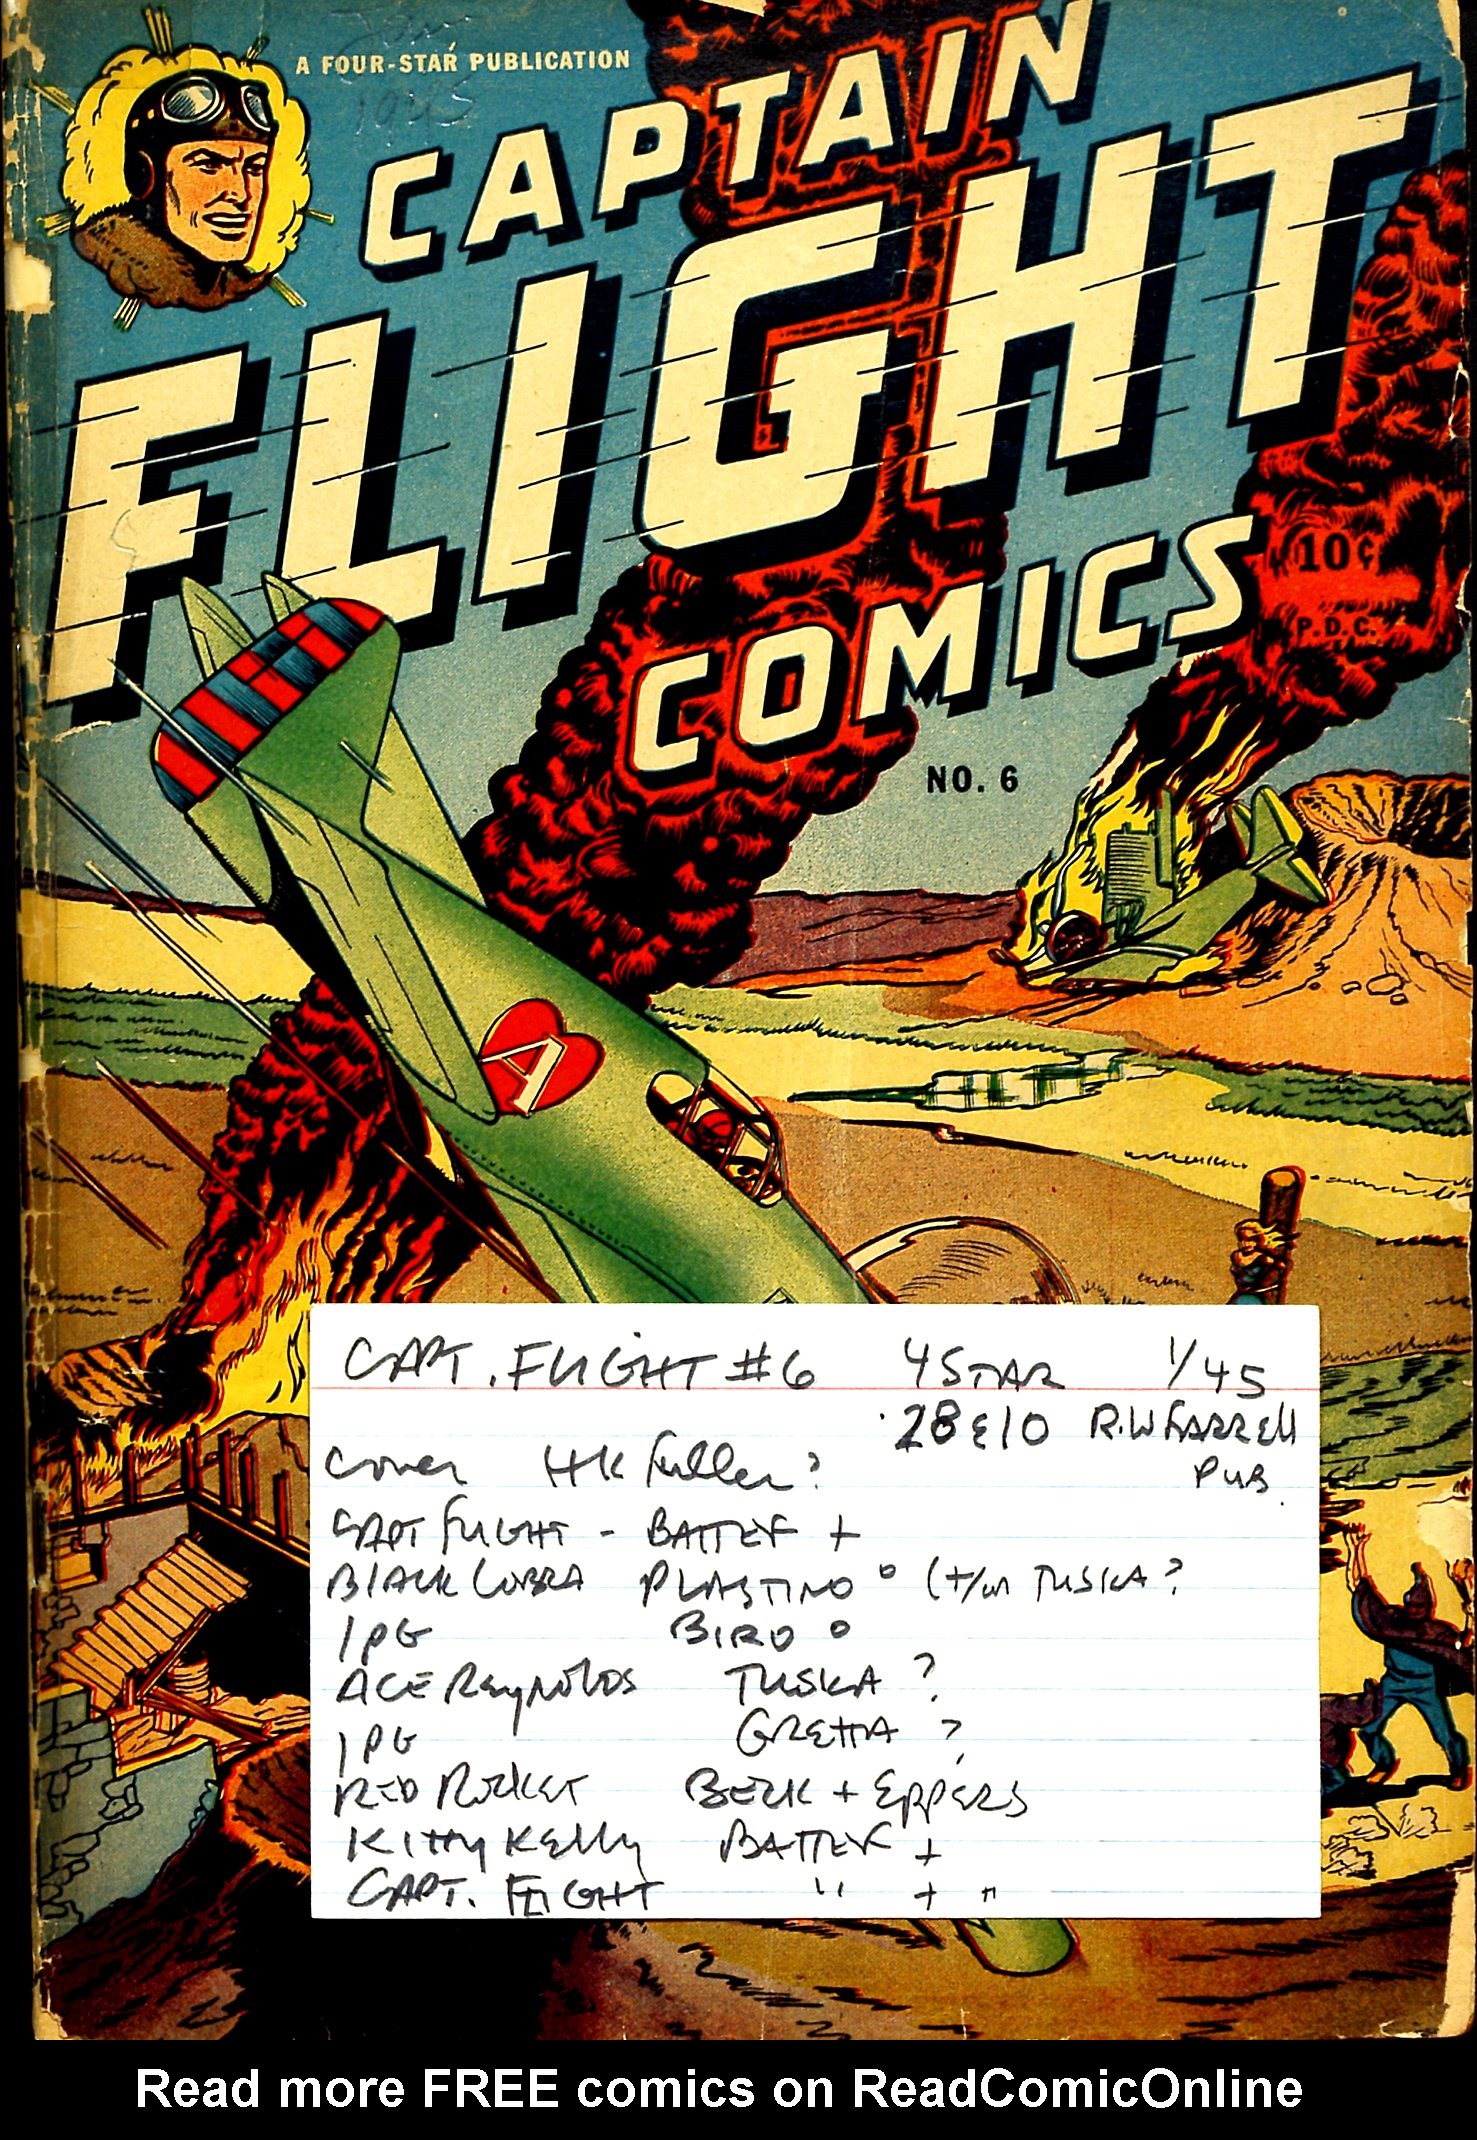 Jan
1945
A FOUR-STAR PUBLICATION
CAPTAIN
FLIGHT
COMICS
10¢
P.D.C.
NO. 6
A
CAPT. FLIGHT #6 4 STAR 1/45
28 & 10 R.W FARRELL
PUB.
Cover HK Fuller?
CAPT FLIGHT - BATTEF +
BLACK COBRA PLASTINO o (+/or TUSKA?
1 PG BIRO o
ACE Reynolds TUSKA ?
1 PG GRETTA ?
RED ROCKET BECK + EPPERS
Kitty Kelly BATTEF +
CAPT. FLIGHT " + "
Read more FREE comics on ReadComicOnline